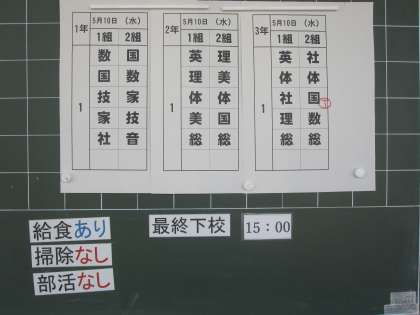 1年 5月10日 (水) 2年 5月10日 (水) 3年 5月10日 (水)
1組 2組 1組 2組 1組 2組
数 国 英 理 英 社
国 数 理 美 体 体
1 技 家 1 体 体 1 社 国
家 技 美 国 理 数
社 音 総 総 総 総
給食あり 最終下校 15:00
掃除なし
部活なし